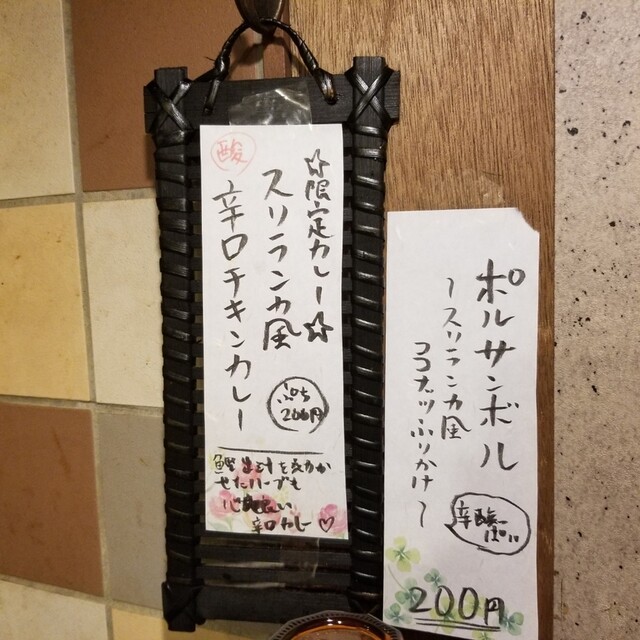 ☆限定カレー☆
スリランカ風
酸
辛口チキンカレー
200円
鰹出汁を効か
せたハーブも
辛口カレー♡
ポルサンボル
～スリランカ風
ココナッツふりかけ～
辛酸っぱい
200円